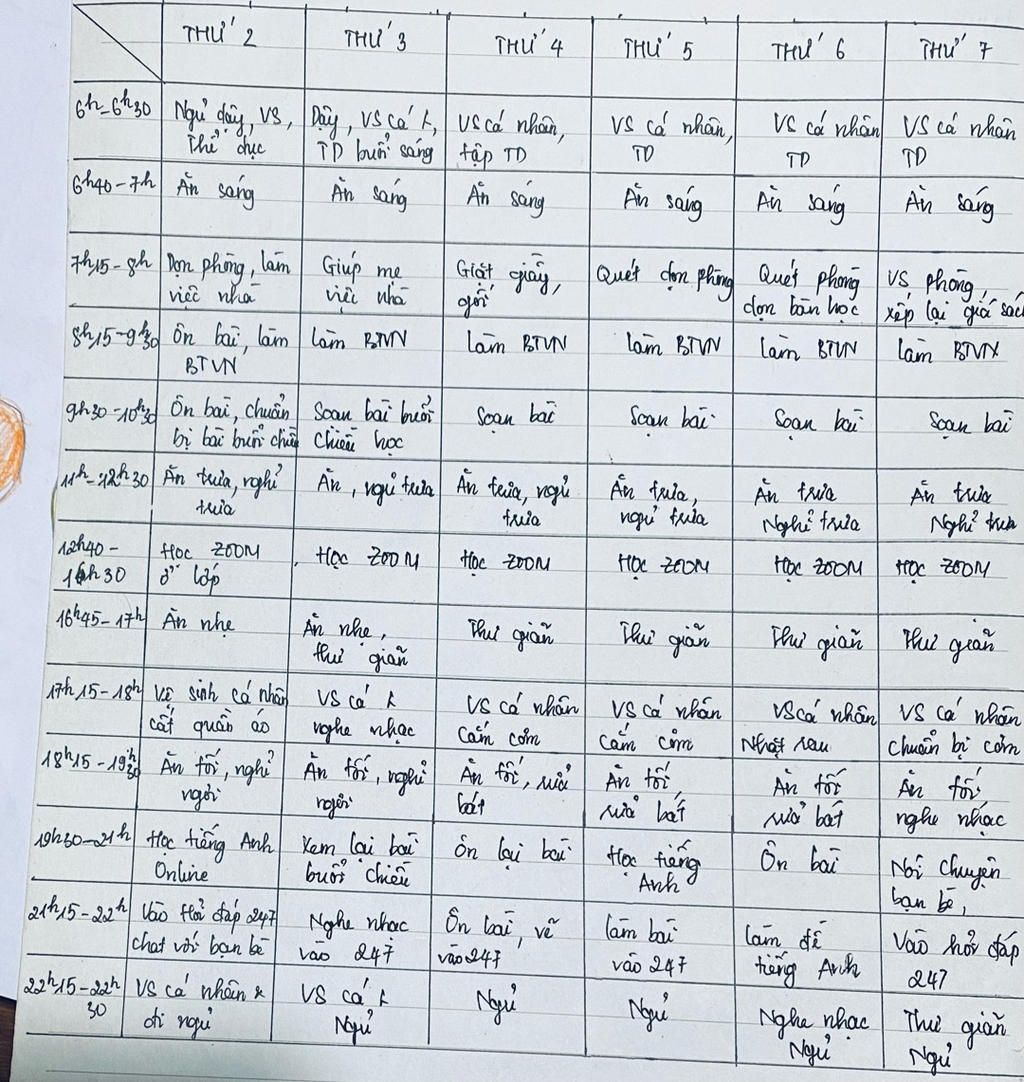 THỨ 2 THỨ 3 THỨ 4 THỨ 5 THỨ 6 THỨ 7
6h-6h30 Ngủ dậy, VS, Dậy, VS cá k, VS cá nhân, VS cá nhân, VS cá nhân VS cá nhân
thể dục TD buổi sáng tập TD TD TD TD
6h40-7h Ăn sáng Ăn sáng Ăn sáng Ăn sáng Ăn sáng Ăn sáng
7h15-8h Dọn phòng, làm Giúp mẹ Giặt giầy, Quét dọn phòng Quét phòng VS phòng,
việc nhà việc nhà gối dọn bàn học xếp lại giá sác
8h15-9h30 Ôn bài, làm làm BTVN làm BTVN làm BTVN làm BTVN làm BTVN
BTVN
9h30-10h30 Ôn bài, chuẩn Soạn bài buổi Soạn bài Soạn bài Soạn bài Soạn bài
bị bài buổi chiều chiều học
11h-12h30 Ăn trưa, nghỉ Ăn, ngủ trưa Ăn trưa, ngủ Ăn trưa, Ăn trưa Ăn trưa
trưa trưa ngủ trưa Nghỉ trưa Nghỉ trưa
12h40- Học ZOOM Học ZOOM Học ZOOM Học ZOOM Học ZOOM Học ZOOM
16h30 ở lớp
16h45-17h Ăn nhẹ Ăn nhẹ, Thư giãn Thư giãn Thư giãn Thư giãn
thư giãn
17h15-18h Vệ sinh cá nhân VS cá k VS cá nhân VS cá nhân VS cá nhân VS cá nhân
cất quần áo nghe nhạc cắm cơm cắm cơm Nhặt rau chuẩn bị cơm
18h15-19h30 Ăn tối, nghỉ Ăn tối, nghỉ Ăn tối, rửa Ăn tối, Ăn tối Ăn tối
ngơi ngơi bát rửa bát rửa bát nghe nhạc
19h30-21h Học tiếng Anh Xem lại bài Ôn lại bài Học tiếng Ôn bài Nói chuyện
Online buổi chiều Anh bạn bè,
21h15-22h Vào Hỏi đáp 247 Nghe nhạc Ôn bài, vẽ làm bài làm đề Vào hỏi đáp
chat với bạn bè vào 247 vào 247 vào 247 tiếng Anh 247
22h15-22h VS cá nhân & VS cá k Ngủ Ngủ Nghe nhạc Thư giãn
30 đi ngủ Ngủ Ngủ Ngủ